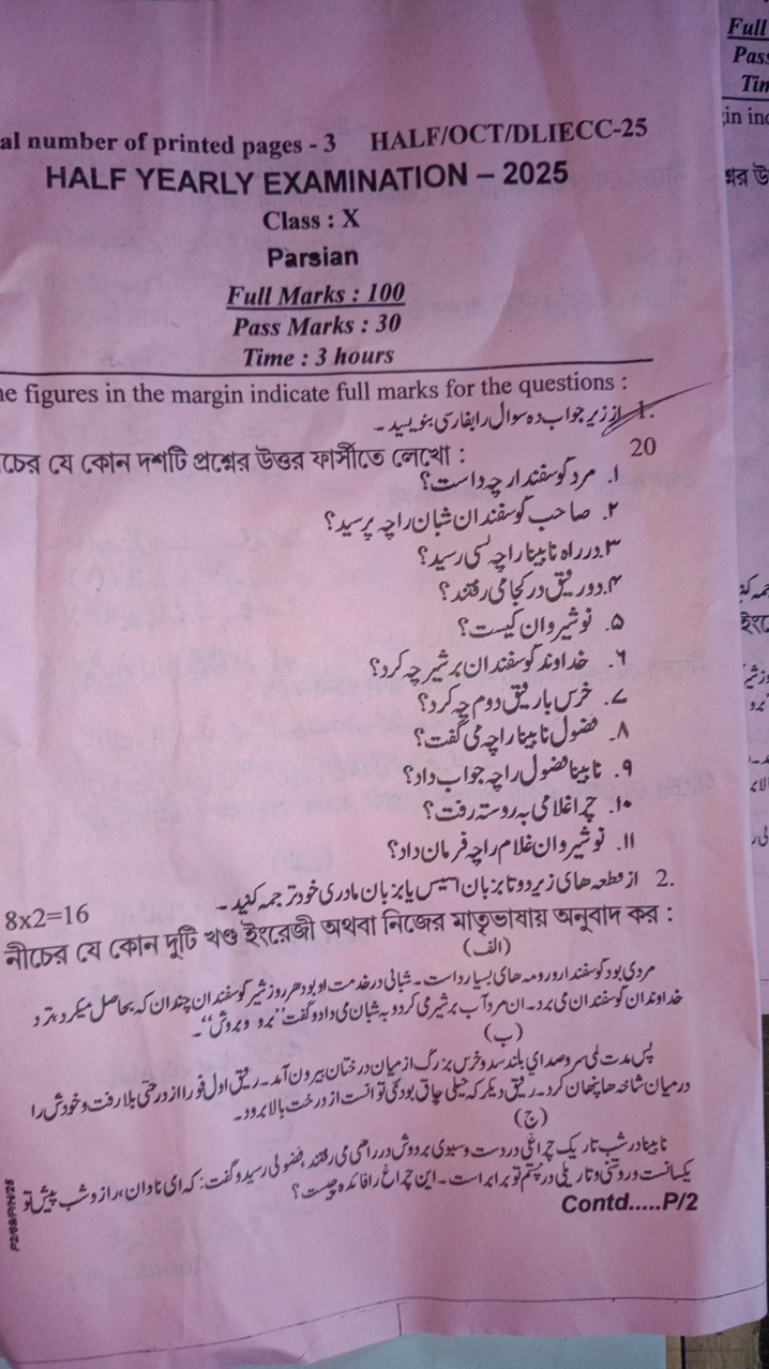 al number of printed pages - 3 HALF/OCT/DLIECC-25
HALF YEARLY EXAMINATION – 2025
Class : X
Parsian
Full Marks : 100
Pass Marks : 30
Time : 3 hours
he figures in the margin indicate full marks for the questions :
1. از زیر جواب ده سوال را بفارسی بنویسید -
চের যে কোন দশটি প্রশ্নের উত্তর ফার্সীতে লেখো : 20
۱. مرد گوسفندار چه داست؟
۲. صاحب گوسفندان شبان را چه پرسید؟
۳. در راه نابینا را چه کسی رسید؟
۴. دو رفیق در کجا می رفتند؟
۵. نوشیروان کیست؟
۶. خداوند گوسفندان بر شیر چه کرد؟
۷. خرس با رفیق دوم چه کرد؟
۸. فضول نابینا را چه می گفت؟
۹. نابینا فضول را چه جواب داد؟
۱۰. چرا غلامی به روسته رفت؟
۱۱. نوشیروان غلام را چه فرمان داد؟
2. از قطعه های زیر دو تا بزبان یا بزبان مادری خود ترجمه کنید -
8x2=16
নীচের যে কোন দুটি খণ্ড ইংরেজী অথবা নিজের মাতৃভাষায় অনুবাদ কর :
(الف)
مردی بود گوسفندار و رومه های بسیار داست - شبانی در خدمت او بود هر روز شیر گوسفندان چندان که بحاصل میکرد بنزد
خداوندان گوسفندان می برد - ان مرد آب بر شیر می کرد و به شبان می داد و گفت "برو و بروش" -
(ب)
پس مدت می سر و صدای بلند سد و خرس بزرگ از میان درختان بیرون آمد - رفیق اول فورا از درختی بلا رفت و خودش را
درمیان شاخه ها پنهان کرد - رفیق دیگر که خیلی چاق بود نمی توانست از درخت بالا برود -
(ج)
نابینا در شب تاریک چراغی در دست و سبوی بر دوش در راهی می رفتند، فضولی رسید و گفت: که ای نادان، راز و شب پیش تو
یکسانست و روشنی و تاریکی در چشم تو برابر است - این چراغ را فائده چیست؟
Contd.....P/2
P2/69/P/H/25
Full
Pass
Tim